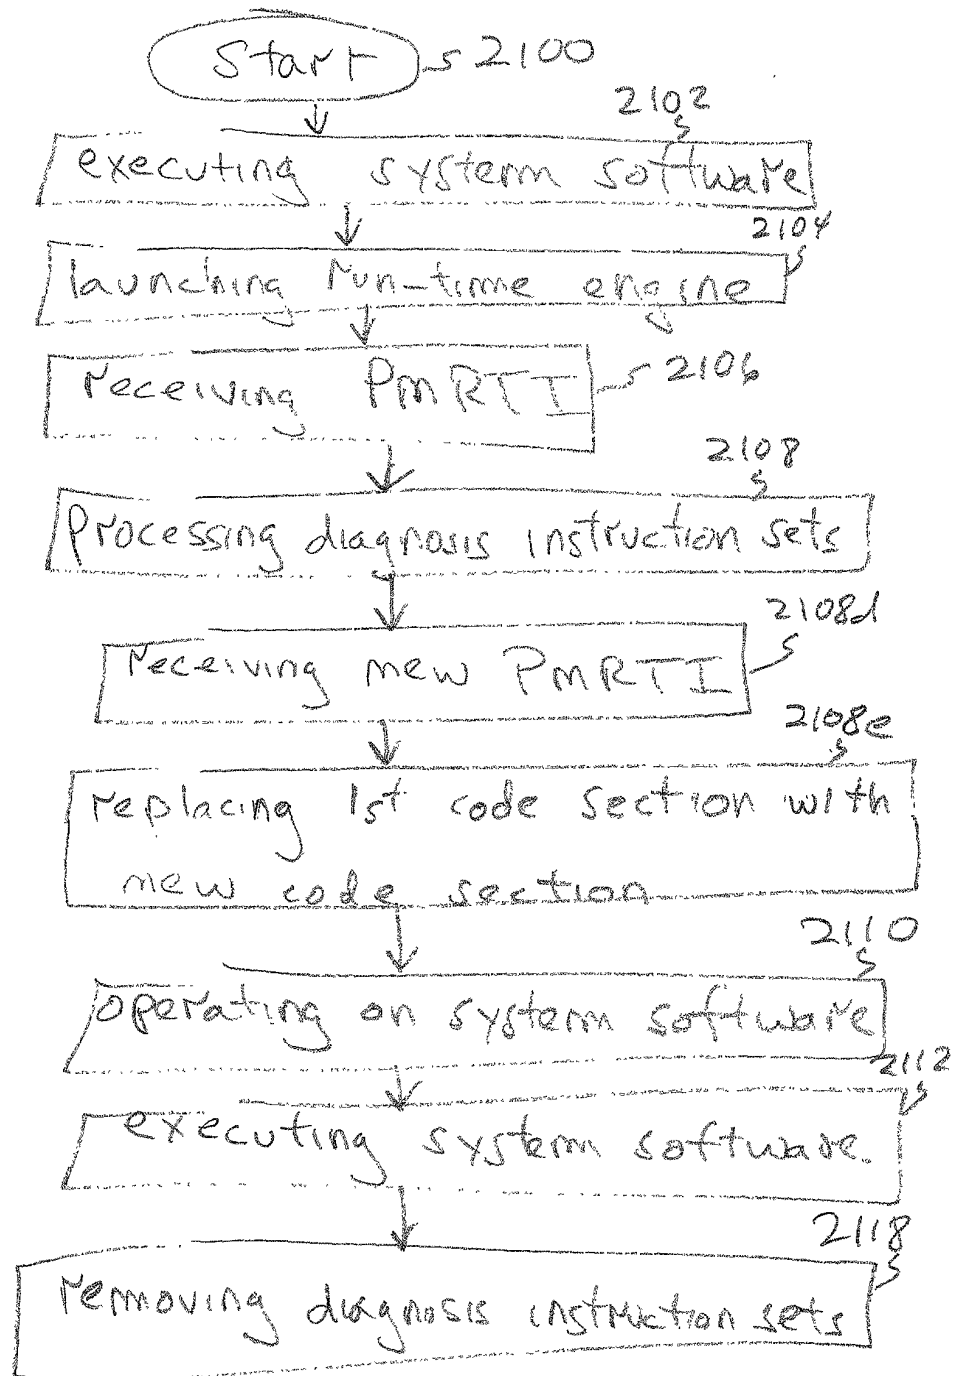 Start 2100
2102
executing system software
2104
launching run-time engine
receiving PMRTI 2106
2108
Processing diagnosis instruction sets
2108d
receiving new PMRTI
2108e
replacing 1st code section with
new code section
2110
operating on system software
2112
executing system software.
2118
removing diagnosis instruction sets